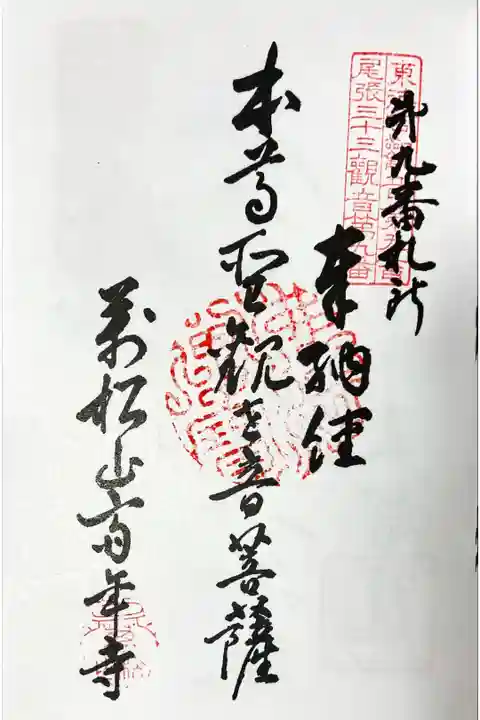 第九番札所
尾張三十三觀音第九番
奉納経
本尊聖観世音菩薩
萬松山斎年寺